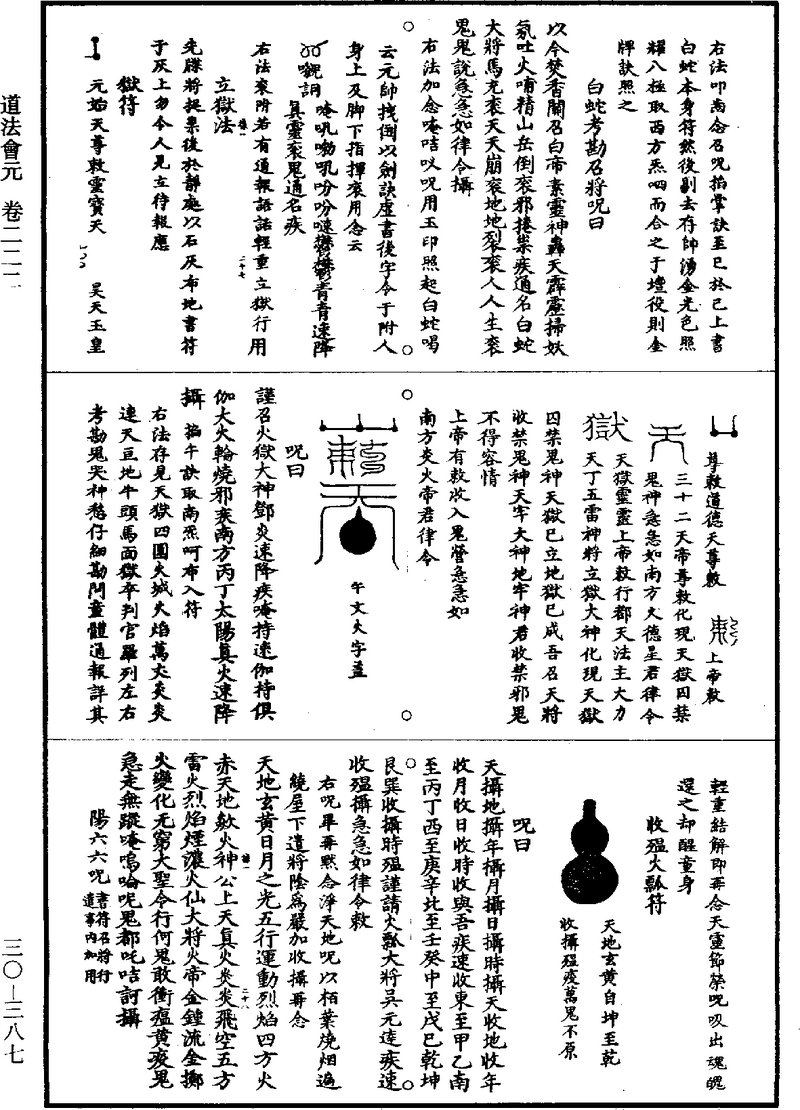 道法會元　卷二二二
三〇—三八七
右法叩齒念召呪掐掌訣至巳於巳上書
白蛇本身符然後剔去存師湧金光色照
耀八極取西方炁呬而合之于壇役則金
牌訣照之
白蛇考勘召將呪曰
以今焚香關召白帝素靈神轟天霹靂掃妖
氛吐火哺精山岳倒衮邪捲祟疾通名白蛇
大將馬充衮天天崩衮地地裂衮人人生衮
鬼鬼說急急如律令攝
右法加念唵咭㕥呪用玉印照起白蛇喝
云元帥拽倒以劍訣虛書後字令于附人
身上及脚下指揮衮用念云
真靈衮鬼通名疾
右法衮附若有通報語話輕重立獄行用
立獄法
先牒將捉祟後於靜處以石灰布地書符
于灰上勿令人見立待報應
獄符
元始天尊敕靈寶天　昊天玉皇
尊敕道德天尊敕　上帝敕
三十二天帝尊敕化現天獄囚禁
鬼神急急如南方火德星君律令
天獄靈靈上帝敕行都天法主大力
天丁五雷神將立獄大神化現天獄
囚禁鬼神天獄已立地獄已成吾召天將
收禁鬼神天牢大神地牢神君收禁邪鬼
不得容情
上帝有敕收入鬼營急急如
南方炎火帝君律令
午文火字蓋
呪曰
謹召火獄大神鄧炎速降疾唵持速伽持俱
伽大火輪燒邪衮南方丙丁太陽真火速降
攝　掐午訣取南炁呵布入符
右法存見天獄四圍火城火焰萬丈炎炎
連天亘地牛頭馬面獄卒判官羅列左右
考勘鬼哭神愁仔細勘問童體通報詳其
輕重結解即再念天靈節榮呪吸出魂魄
還之却醒童身
收瘟火瓢符
天地玄黃自坤至乾
收攝瘟疫萬鬼不原
呪曰
天攝地攝年攝月攝日攝時攝天收地收年
收月收日收時收與吾疾速收東至甲乙南
至丙丁西至庚辛北至壬癸中至戊巳乾坤
艮巽收攝時瘟謹請火瓢大將吳元逵疾速
收瘟攝急急如律令敕
右呪畢再默念淨天地呪以栢葉燒烟遍
繞屋下遣將陰為嚴加收攝再念
天地玄黃日月之光五行運動烈焰四方火
赤天地欻火神公上天真火炎炎飛空五方
雷火烈焰煙濃火仙大將火帝金鐘流金擲
火變化无窮大聖令行何鬼敢衝瘟黃疫鬼
急走無蹤唵嗚唅呪鬼都吒咭訶攝
陽六六呪　書符召將行遣事內加用